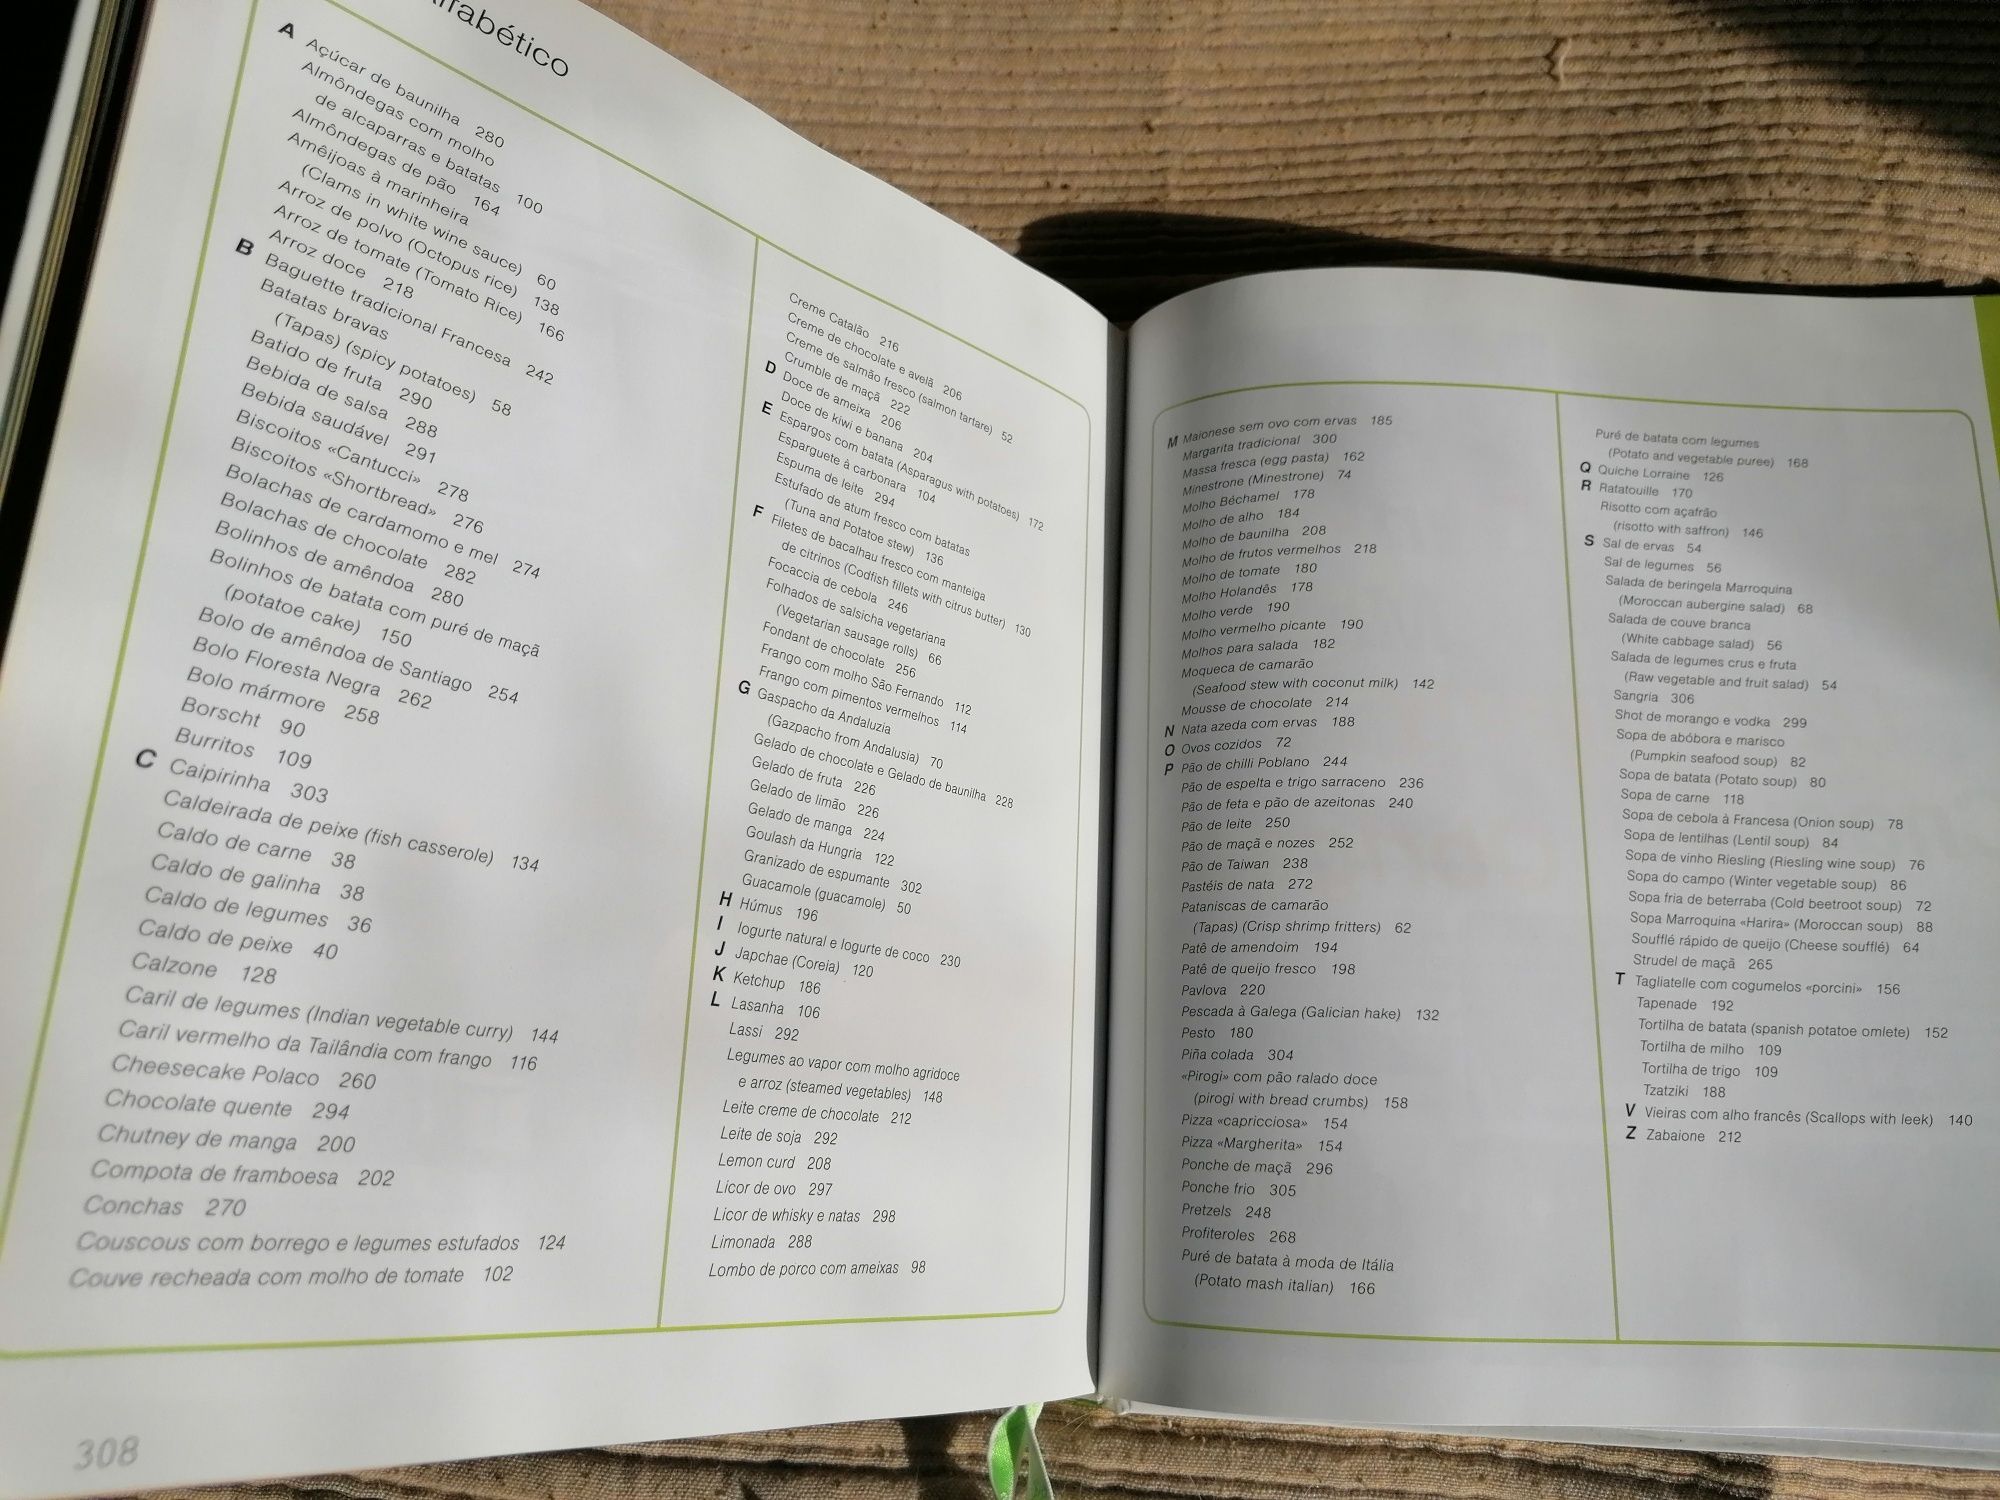 Alfabético
A Açúcar de baunilha 280
Almôndegas com molho
de alcaparras e batatas 100
Almôndegas de pão 164
Amêijoas à marinheira
(Clams in white wine sauce) 60
Arroz de polvo (Octopus rice) 138
Arroz de tomate (Tomato Rice) 166
Arroz doce 218
B Baguette tradicional Francesa 242
Batatas bravas
(Tapas) (spicy potatoes) 58
Batido de fruta 290
Bebida de salsa 288
Bebida saudável 291
Biscoitos «Cantucci» 278
Biscoitos «Shortbread» 276
Bolachas de cardamomo e mel 274
Bolachas de chocolate 282
Bolinhos de amêndoa 280
Bolinhos de batata com puré de maçã
(potatoe cake) 150
Bolo de amêndoa de Santiago 254
Bolo Floresta Negra 262
Bolo mármore 258
Borscht 90
Burritos 109
C Caipirinha 303
Caldeirada de peixe (fish casserole) 134
Caldo de carne 38
Caldo de galinha 38
Caldo de legumes 36
Caldo de peixe 40
Calzone 128
Caril de legumes (Indian vegetable curry) 144
Caril vermelho da Tailândia com frango 116
Cheesecake Polaco 260
Chocolate quente 294
Chutney de manga 200
Compota de framboesa 202
Conchas 270
Couscous com borrego e legumes estufados 124
Couve recheada com molho de tomate 102
Creme Catalão 216
Creme de chocolate e avelã 206
Creme de salmão fresco (salmon tartare) 52
Crumble de maçã 222
D Doce de ameixa 206
Doce de kiwi e banana 204
E Espargos com batata (Asparagus with potatoes) 172
Esparguete à carbonara 104
Espuma de leite 294
Estufado de atum fresco com batatas
(Tuna and Potatoe stew) 136
F Filetes de bacalhau fresco com manteiga
de citrinos (Codfish fillets with citrus butter) 130
Focaccia de cebola 246
Folhados de salsicha vegetariana
(Vegetarian sausage rolls) 66
Fondant de chocolate 256
Frango com molho São Fernando 112
Frango com pimentos vermelhos 114
G Gaspacho da Andaluzia
(Gazpacho from Andalusia) 70
Gelado de chocolate e Gelado de baunilha 228
Gelado de fruta 226
Gelado de limão 226
Gelado de manga 224
Goulash da Hungria 122
Granizado de espumante 302
Guacamole (guacamole) 50
H Húmus 196
I Iogurte natural e Iogurte de coco 230
J Japchae (Coreia) 120
K Ketchup 186
L Lasanha 106
Lassi 292
Legumes ao vapor com molho agridoce
e arroz (steamed vegetables) 148
Leite creme de chocolate 212
Leite de soja 292
Lemon curd 208
Licor de ovo 297
Licor de whisky e natas 298
Limonada 288
Lombo de porco com ameixas 98
308
M Maionese sem ovo com ervas 185
Margarita tradicional 300
Massa fresca (egg pasta) 162
Minestrone (Minestrone) 74
Molho Béchamel 178
Molho de alho 184
Molho de baunilha 208
Molho de frutos vermelhos 218
Molho de tomate 180
Molho Holandês 178
Molho verde 190
Molho vermelho picante 190
Molhos para salada 182
Moqueca de camarão
(Seafood stew with coconut milk) 142
Mousse de chocolate 214
N Nata azeda com ervas 188
O Ovos cozidos 72
P Pão de chilli Poblano 244
Pão de espelta e trigo sarraceno 236
Pão de feta e pão de azeitonas 240
Pão de leite 250
Pão de maçã e nozes 252
Pão de Taiwan 238
Pastéis de nata 272
Pataniscas de camarão
(Tapas) (Crisp shrimp fritters) 62
Patê de amendoim 194
Patê de queijo fresco 198
Pavlova 220
Pescada à Galega (Galician hake) 132
Pesto 180
Piña colada 304
«Pirogi» com pão ralado doce
(pirogi with bread crumbs) 158
Pizza «capricciosa» 154
Pizza «Margherita» 154
Ponche de maçã 296
Ponche frio 305
Pretzels 248
Profiteroles 268
Puré de batata à moda de Itália
(Potato mash italian) 166
Puré de batata com legumes
(Potato and vegetable puree) 168
Q Quiche Lorraine 126
R Ratatouille 170
Risotto com açafrão
(risotto with saffron) 146
S Sal de ervas 54
Sal de legumes 56
Salada de beringela Marroquina
(Moroccan aubergine salad) 68
Salada de couve branca
(White cabbage salad) 56
Salada de legumes crus e fruta
(Raw vegetable and fruit salad) 54
Sangria 306
Shot de morango e vodka 299
Sopa de abóbora e marisco
(Pumpkin seafood soup) 82
Sopa de batata (Potato soup) 80
Sopa de carne 118
Sopa de cebola à Francesa (Onion soup) 78
Sopa de lentilhas (Lentil soup) 84
Sopa de vinho Riesling (Riesling wine soup) 76
Sopa do campo (Winter vegetable soup) 86
Sopa fria de beterraba (Cold beetroot soup) 72
Sopa Marroquina «Harira» (Moroccan soup) 88
Soufflé rápido de queijo (Cheese soufflé) 64
Strudel de maçã 265
T Tagliatelle com cogumelos «porcini» 156
Tapenade 192
Tortilha de batata (spanish potatoe omlete) 152
Tortilha de milho 109
Tortilha de trigo 109
Tzatziki 188
V Vieiras com alho francês (Scallops with leek) 140
Z Zabaione 212